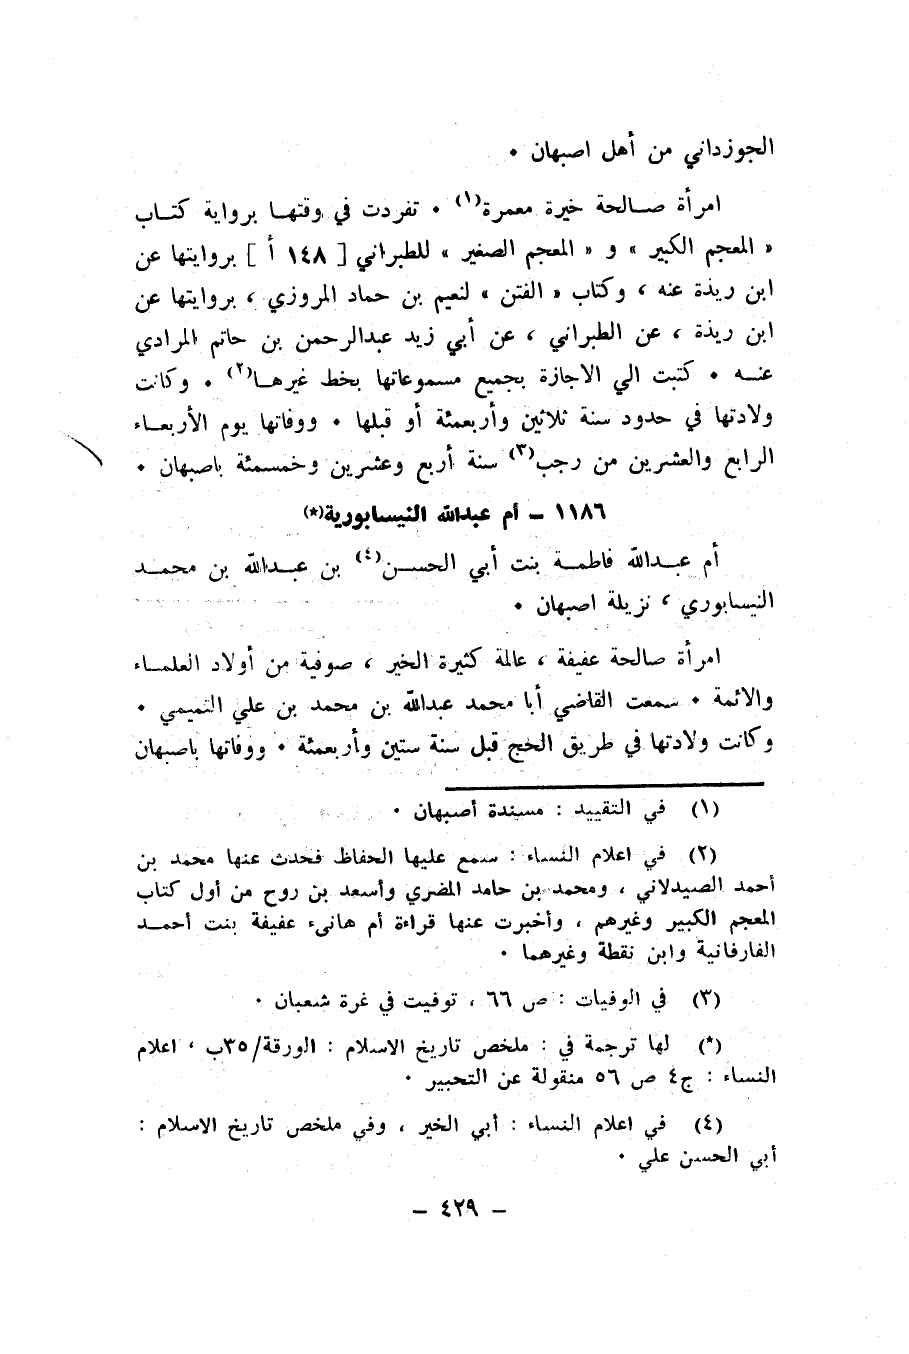 الجوزداني من أهل اصبهان .
امرأة صــالحة خيرة معمرة(١) . تفردت في وقتهــا برواية كتــاب
« المعجم الكبير » و « المعجم الصغير » للطبراني [ ١٤٨ أ ] بروايتها عن
ابن ريذة عنه ، وكتاب « الفتن » لنعيم بن حماد المروزي ، بروايتها عن
ابن ريذة ، عن الطبراني ، عن أبي زيد عبدالرحمن بن حاتم المرادي
عنــه . كتبت الي الاجازة بجميع مسموعاتها بخط غيرهــا(٢) . وكانت
ولادتها في حدود سنة ثلاثين وأربعمئة أو قبلها . ووفاتها يوم الأربعــاء
الرابع والعشرين من رجب(٣) سنة أربع وعشرين وخمسمئة باصبهان .
١١٨٦ – أم عبدالله النيسابورية(*)
أم عبــدالله فاطمــة بنت أبي الحســن(٤) بن عبــدالله بن محمــد
النيسابوري ، نزيلة اصبهان .
امرأة صالحة عفيفة ، عالمة كثيرة الخير ، صوفية من أولاد العلمــاء
والائمة . سمعت القاضي أبا محمد عبدالله بن محمد بن علي التميمي .
وكانت ولادتها في طريق الحج قبل سنة ستين وأربعمئة . ووفاتها باصبهان
(١) في التقييد : مسندة أصبهان .
(٢) في اعلام النساء : سمع عليها الحفاظ فحدث عنها محمد بن
أحمد الصيدلاني ، ومحمد بن حامد المضري وأسعد بن روح من أول كتاب
المعجم الكبير وغيرهم ، وأخبرت عنها قراءة أم هانىء عفيفة بنت أحمــد
الفارفانية وابن نقطة وغيرهما .
(٣) في الوفيات : ص ٦٦ ، توفيت في غرة شعبان .
(*) لها ترجمة في : ملخص تاريخ الاسلام : الورقة/٣٥ب ، اعلام
النساء : ج٤ ص ٥٦ منقولة عن التحبير .
(٤) في اعلام النساء : أبي الخير ، وفي ملخص تاريخ الاسلام :
أبي الحسن علي .
– ٤٢٩ –